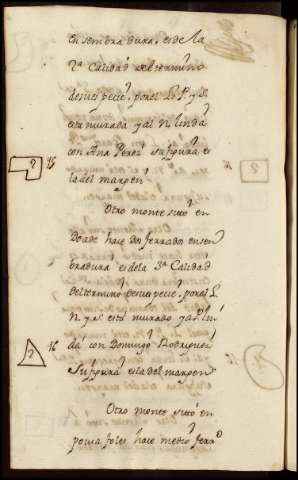 en sembradura, es de la
2ª Calidad de el termino
de su especie. por el L. P. y S.
esta murada y al N. linda
con Ana Perez su figura es
la del margen
Otro monte sito en
Doade hace dos ferrados en sem
bradura es de la 3ª Calidad
del termino de su especie. por el L.
N. y S. está murado y al P. lin
da con Domingo Rodriguez
Su figura es la del margen
Otro monte sito en
foles hace medio ferrº